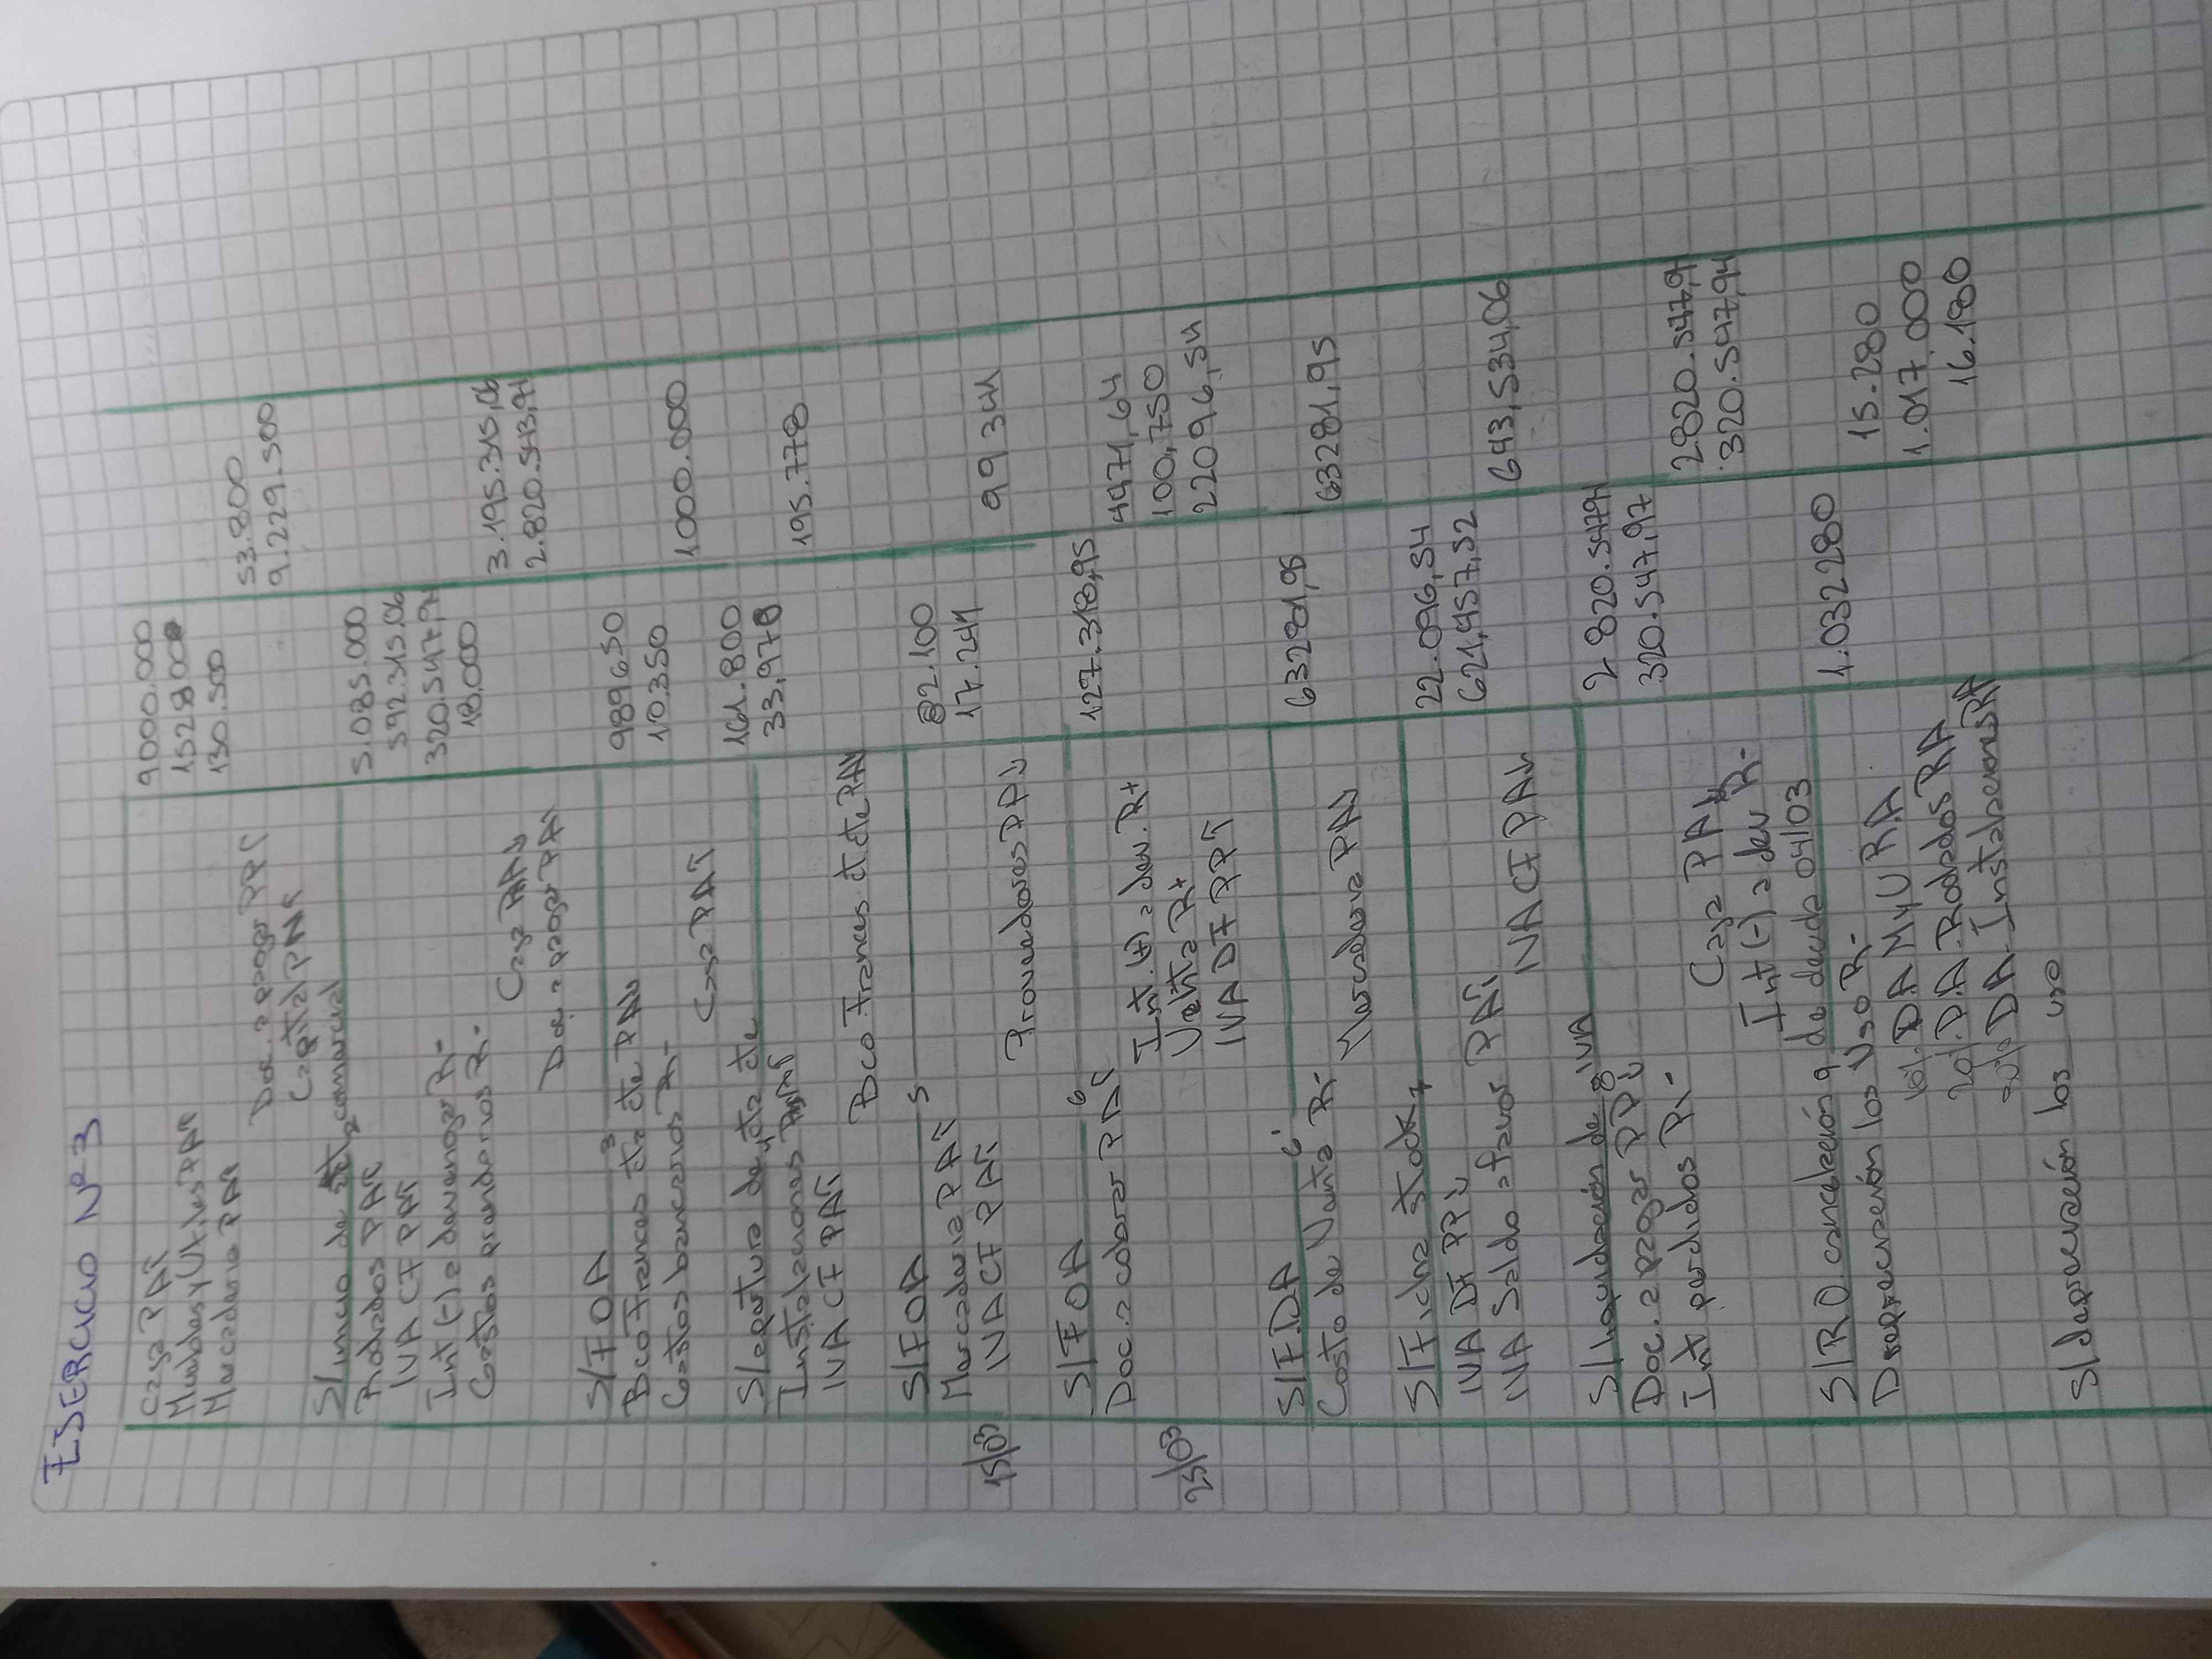 EJERCICIO Nº 3
Caja PA↑ 9000.000
Muebles y Utiles PA↑ 152800
Mercaderia PA↑ 130.500
Doc. a pagar PP↑ 53.800
Capital PN↑ 9.229.500
S/ inicio de act comercial
2
Rodados PA↑ 5.085.000
IVA CF PA↑ 592.315,06
Int (-) a devengar R- 320.547,94
Gastos prendarios R- 18.000
Caja PA↓ 3.195.315,06
Doc. a pagar PA↑ 2.820.543,94
S/FOA
3
Bco Frances cta cte PA↑ 989650
Gastos bancarios R- 10.350
Caja PA↑ 1000.000
S/ apertura de cta cte
4
Instalaciones PA↑ 161.800
IVA CF PA↑ 33,978
Bco Frances ct cte PA↓ 195.778
S/FOA
5
15/03
Mercaderia PA↑ 82.100
IVA CF PA↑ 17.241
Proveedores PP↓ 99 341
S/FOA
6
25/03
Doc. a cobrar PA↑ 127.318,95
Int. (+) a dev. R+ 4471,64
Venta R+ 100,750
IVA DF PP↑ 22096,54
S/FDA
6'
Costo de Venta R- 63281,95
Mercaderia PA↓ 63281,95
S/Ficha stock
7
IVA DF PP↓ 22.096,54
IVA Saldo a favor PA↑ 621,457,52
IVA CF PA↓ 643,534,06
S/ liquidación de IVA
8
Doc. a pagar PP↓ 2 820.547,94
Int perdidos R- 320.547,97
Caja PA↓ 2820.547,94
Int (-) a dev R- 320.547,94
S/RO cancelación de deuda 04/03
9
Depreciación los Uso R- 1.032280
10%. DA MyU RA 15.280
20%. D.A Rodados RA 1.017.000
DA Instalaciones RA 16.180
S/ depreciación los uso